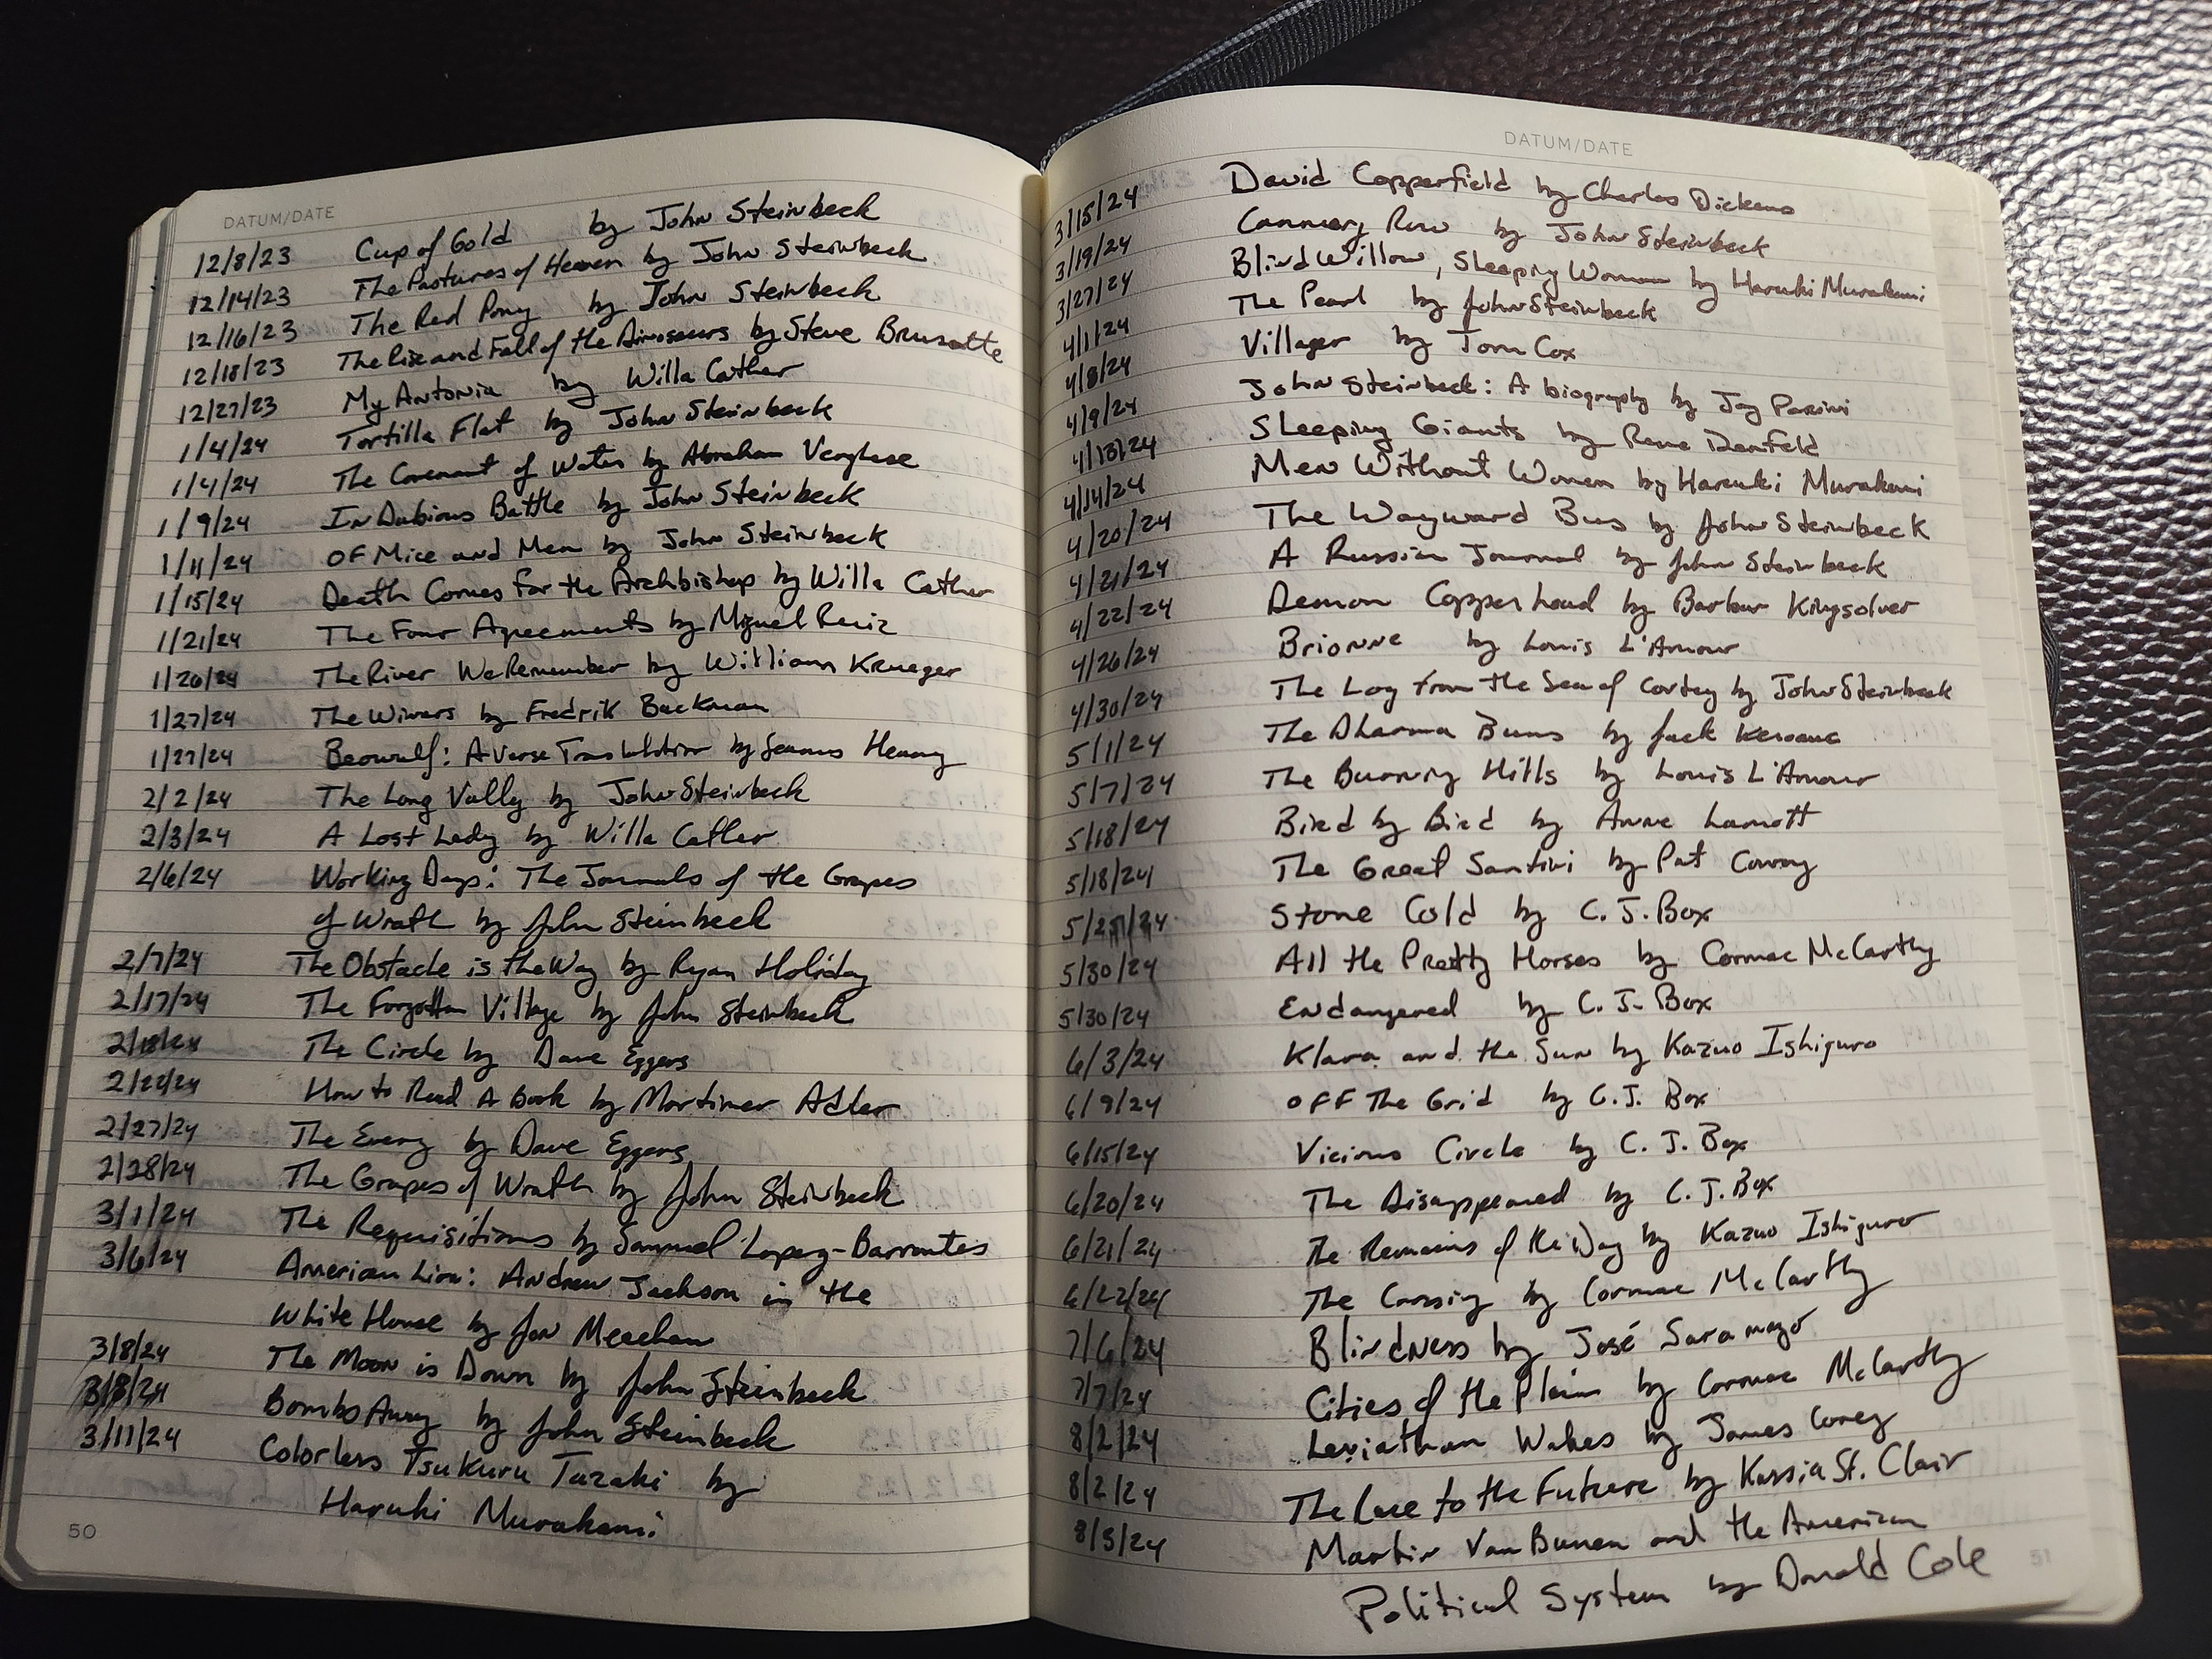 DATUM/DATE
12/8/23 Cup of Gold by John Steinbeck
12/14/23 The Pastures of Heaven by John Steinbeck
12/16/23 The Red Pony by John Steinbeck
12/18/23 The Rise and Fall of the Dinosaurs by Steve Brusatte
12/27/23 My Antonia by Willa Cather
1/4/24 Tortilla Flat by John Steinbeck
1/4/24 The Covenant of Water by Abraham Verghese
1/9/24 In Dubious Battle by John Steinbeck
1/11/24 Of Mice and Men by John Steinbeck
1/15/24 Death Comes For the Archbishop by Willa Cather
1/21/24 The Four Agreements by Miguel Ruiz
1/26/24 The River We Remember by William Krueger
1/27/24 The Winners by Fredrik Backman
1/27/24 Beowulf: A Verse Translation by Seamus Heaney
2/2/24 The Long Vally by John Steinbeck
2/3/24 A Lost Lady by Willa Cather
2/6/24 Working Days: The Journals of the Grapes
of Wrath by John Steinbeck
2/7/24 The Obstacle is the Way by Ryan Holiday
2/17/24 The Forgotten Village by John Steinbeck
2/18/24 The Circle by Dave Eggers
2/22/24 How to Read A Book by Mortimer Adler
2/27/24 The Every by Dave Eggers
2/28/24 The Grapes of Wrath by John Steinbeck
3/1/24 The Requisitions by Samuel Lopez-Barrantes
3/6/24 American Lion: Andrew Jackson in the
White House by Jon Meacham
3/8/24 The Moon is Down by John Steinbeck
3/8/24 Bombs Away by John Steinbeck
3/11/24 Colorless Tsukuru Tazaki by
Haruki Murakami
50
DATUM/DATE
3/15/24 David Copperfield by Charles Dickens
3/19/24 Cannery Row by John Steinbeck
3/27/24 Blind Willow, Sleeping Woman by Haruki Murakami
4/1/24 The Pearl by John Steinbeck
4/8/24 Villager by Tom Cox
4/9/24 John Steinbeck: A biography by Jay Parini
4/10/24 Sleeping Giants by Rene Denfeld
4/14/24 Men Without Women by Haruki Murakami
4/20/24 The Wayward Bus by John Steinbeck
4/21/24 A Russian Journal by John Steinbeck
4/22/24 Demon Copperhead by Barbar Kingsolver
4/26/24 Brionne by Louis L'Amour
4/30/24 The Log from the Sea of Cortey by John Steinbeck
5/1/24 The Dharma Bums by Jack Kerouac
5/7/24 The Burning Hills by Louis L'Amour
5/18/24 Bird by Bird by Anne Lamott
5/18/24 The Great Santini by Pat Conroy
5/25/24 Stone Cold by C. J. Box
5/30/24 All the Pretty Horses by Cormac McCarthy
5/30/24 Endangered by C. J. Box
6/3/24 Klara and the Sun by Kazuo Ishiguro
6/9/24 Off The Grid by C.J. Box
6/15/24 Vicious Circle by C. J. Box
6/20/24 The Disappeared by C. J. Box
6/21/24 The Remains of the Day by Kazuo Ishiguro
6/22/24 The Crossing by Cormac McCarthy
7/6/24 Blindness by José Saramago
7/7/24 Cities of the Plain by Cormac McCarthy
8/2/24 Leviathan Wakes by James Corey
8/2/24 The Race to the Future by Kassia St. Clair
8/5/24 Martin Van Buren and the American
Political System by Donald Cole
51